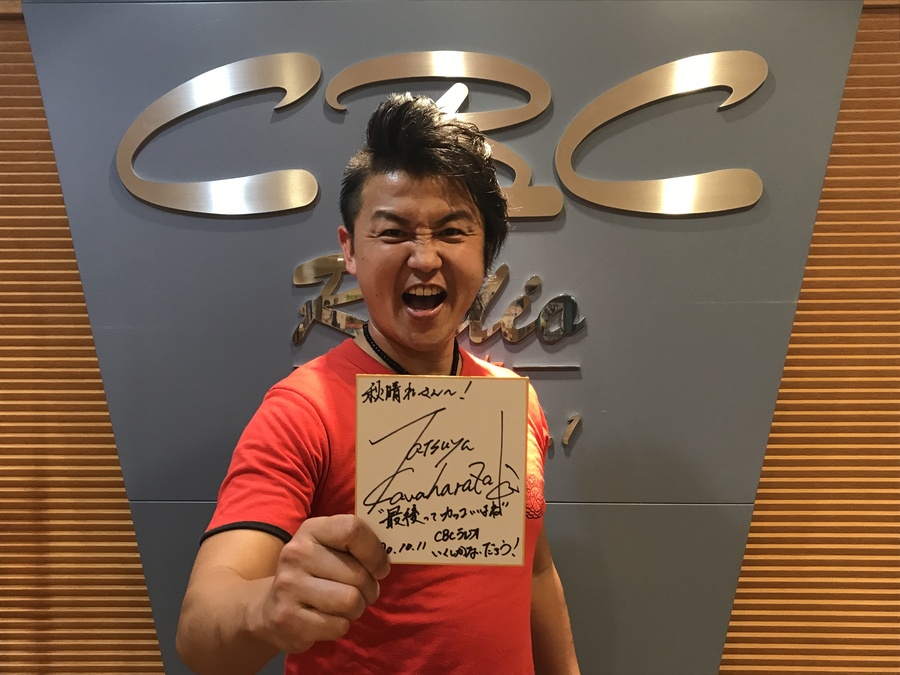 CBC
Radio
秋晴れさん〜!
Tatsuya
Kawaharada
"最後って カッコいいよね"
CBCラジオ
20.10.11 いくしかないだろう!